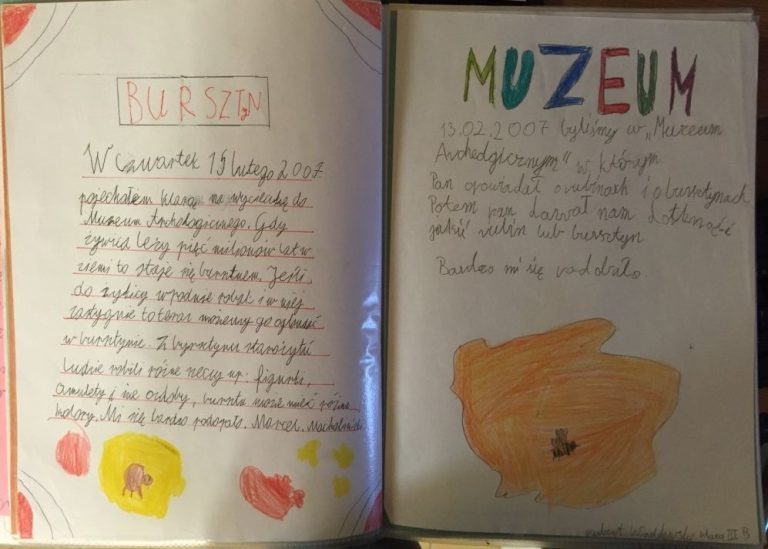 BURSZTN
W czwartek 15 lutego 2007
pojechałem klasą na wycieczkę do
Muzeum Archologicznego. Gdy
żywica leży pięć milionów lat w
ziemi to staje się bursztnem. Jeśli
do żywicy wpadnie robak i w niej
zastygnie to teraz możemy go oglondać
w bursztynie. Z bursztynu starożytni
ludzie robili różne rzeczy np. figurki,
amulety i ine ozdoby, bursztn może mieć różne
kolory. Mi się bardzo podobało. Marcel
MUZEUM
13.02.2007 byliśmy w "Muzeum
w którym
Pan opowiadał o rubinach i o bursztynach
Potem pan dawał nam dotknąć
jakiś rubin lub bursztyn
Bardzo mi się
klasa III B